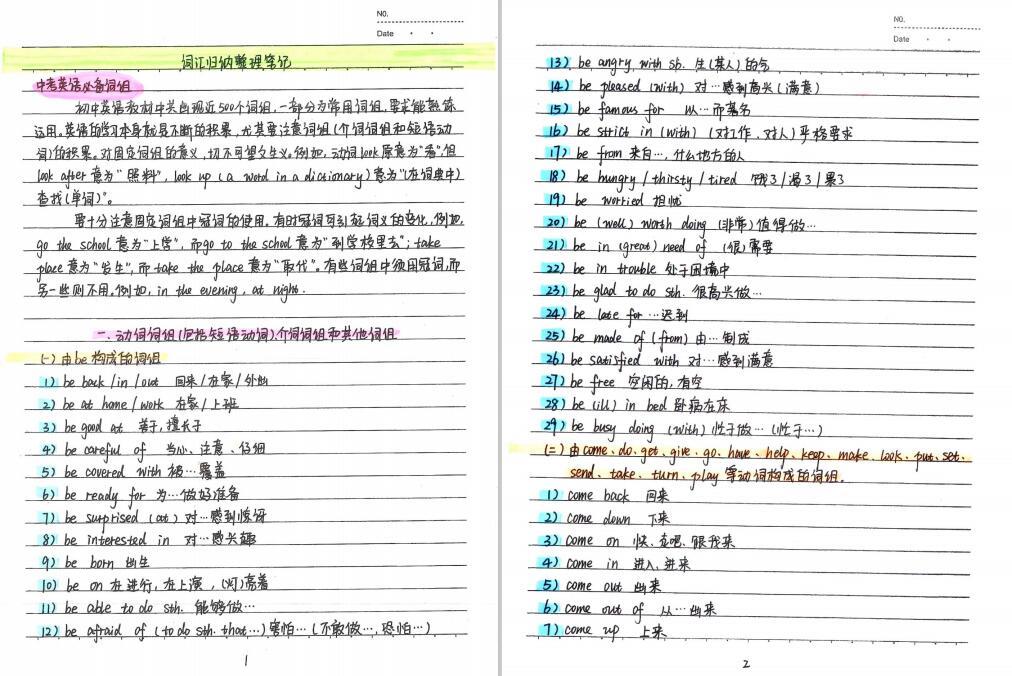 NO.
Date
词汇归纳整理笔记
中考英语必备词组
初中英语教材中共出现近500个词组,一部分为常用词组,要求能熟练
运用。英语的学习本身就是不断的积累,尤其要注意词组(介词词组和短语动
词)的积累。对固定词组的意义,切不可望文生义。例如,动词look原意为"看",但
look after意为"照料",look up (a word in a dictionary)意为"(在词典中)
查找(单词)"。
要十分注意固定词组中冠词的使用。有时冠词可引起词义的变化,例如,
go the school意为"上学",而go to the school意为"到学校里去"; take
place意为"发生",而take the place意为"取代"。有些词组中须用冠词,而
另一些则不用。例如,in the evening, at night.
一、动词词组(包括短语动词)、介词词组和其他词组
(一)由be构成的词组
1) be back/in/out 回来/在家/外出
2) be at home/work 在家/上班
3) be good at 善于,擅长于
4) be careful of 当心、注意、仔细
5) be covered with 被…覆盖
6) be ready for 为…做好准备
7) be surprised (at) 对…感到惊讶
8) be interested in 对…感兴趣
9) be born 出生
10) be on 在进行,在上演,(灯)亮着
11) be able to do sth. 能够做…
12) be afraid of (to do sth. that…)害怕…(不敢做…,恐怕…)
1
NO.
Date
13) be angry with sb. 生(某人)的气
14) be pleased (with) 对…感到高兴(满意)
15) be famous for 以…而著名
16) be strict in (with) (对工作、对人)严格要求
17) be from 来自…,什么地方的人
18) be hungry/thirsty/tired 饿了/渴了/累了
19) be worried 担忧
20) be (well) worth doing (非常)值得做…
21) be in (great) need of (很)需要
22) be in trouble 处于困境中
23) be glad to do sth. 很高兴做…
24) be late for …迟到
25) be made of (from) 由…制成
26) be satisfied with 对…感到满意
27) be free 空闲的,有空
28) be (ill) in bed 卧病在床
29) be busy doing (with) 忙于做…(忙于…)
(二)由come、do、get、give、go、have、help、keep、make、look、put、set、
send、take、turn、play等动词构成的词组.
1) come back 回来
2) come down 下来
3) come on 快、走吧、跟我来
4) come in 进入,进来
5) come out 出来
6) come out of 从…出来
7) come up 上来
2